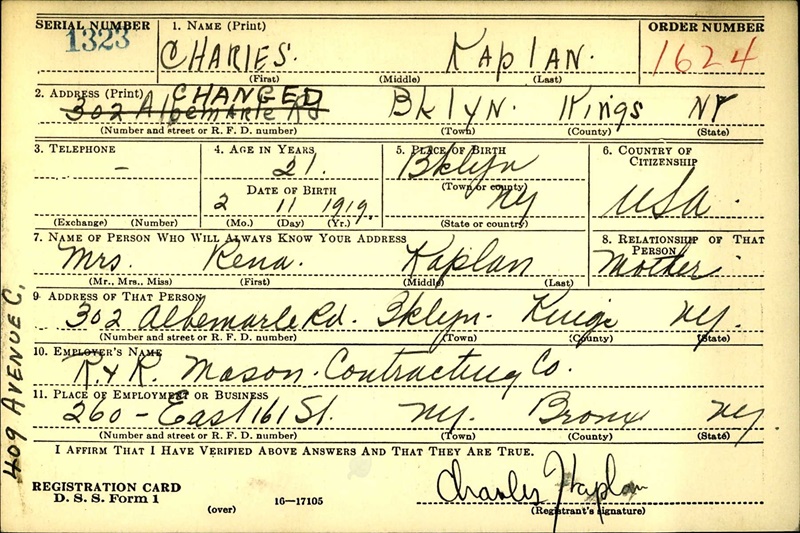 SERIAL NUMBER 1. NAME (Print) ORDER NUMBER
1323 CHARLES. KAPLAN. 1624
(First) (Middle) (Last)
2. ADDRESS (Print) CHANGED
302 Albemarle Rd BKLYN. Kings NY
(Number and street or R. F. D. number) (Town) (County) (State)
3. TELEPHONE 4. AGE IN YEARS 5. PLACE OF BIRTH 6. COUNTRY OF CITIZENSHIP
– 21. Bklyn
(Town or county)
DATE OF BIRTH NY USA.
2 11 1919.
(Exchange) (Number) (Mo.) (Day) (Yr.) (State or country)
7. NAME OF PERSON WHO WILL ALWAYS KNOW YOUR ADDRESS 8. RELATIONSHIP OF THAT PERSON
Mrs. Rena. Kaplan Mother
(Mr., Mrs., Miss) (First) (Middle) (Last)
9. ADDRESS OF THAT PERSON
302 Albemarle Rd. Bklyn. Kings NY.
(Number and street or R. F. D. number) (Town) (County) (State)
10. EMPLOYER'S NAME
R & R. Mason. Contracting Co.
11. PLACE OF EMPLOYMENT OR BUSINESS
260 – East 161 St. NY. Bronx NY.
(Number and street or R. F. D. number) (Town) (County) (State)
I AFFIRM THAT I HAVE VERIFIED ABOVE ANSWERS AND THAT THEY ARE TRUE.
REGISTRATION CARD
D. S. S. Form 1
(over)
16—17105
Charles Kaplan
(Registrant's signature)
409 AVENUE C,